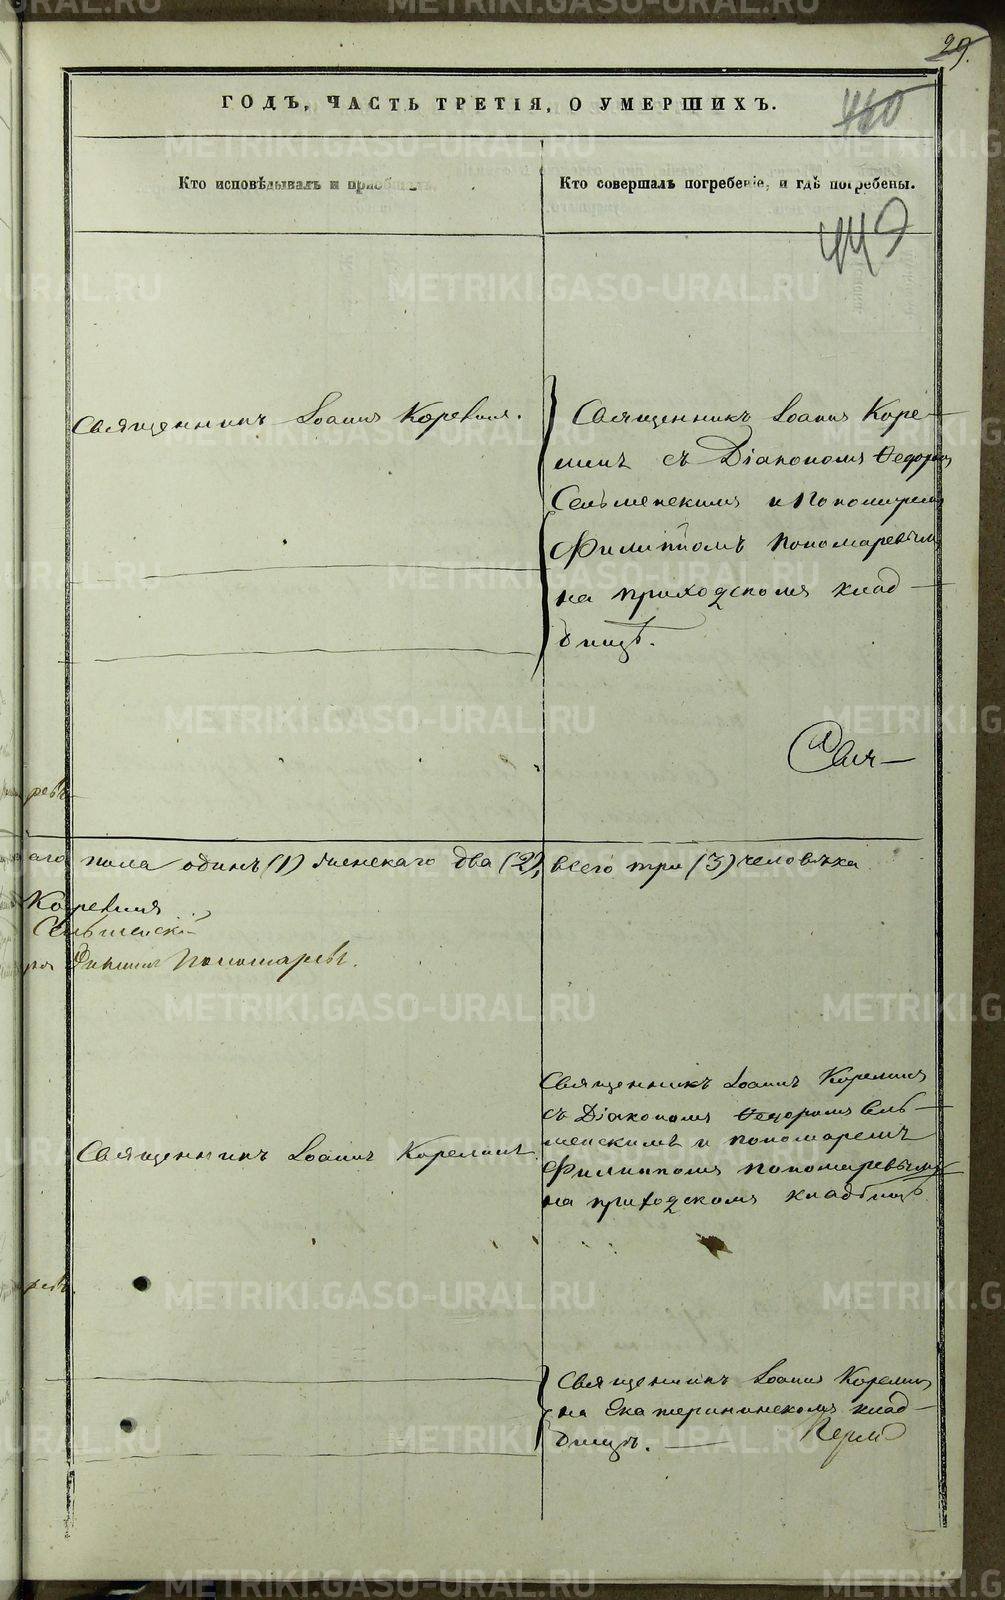 29.
ГОДЪ, ЧАСТЬ ТРЕТІЯ, О УМЕРШИХЪ.
460
Кто исповѣдывалъ и пріобщалъ.
Кто совершалъ погребеніе, и гдѣ погребены.
449
Священникъ Іоаннъ Корелинъ.
Священникъ Іоаннъ Коре-
линъ съ Діакономъ Ѳедоромъ
Сельменскимъ и Пономаремъ
Филиппомъ Пономаревымъ
на приходскомъ клад-
бищѣ.
Свя-
ревъ
аго пола одинъ (1) женскаго два (2), всего три (3) человѣка
Корелинъ
Сельменскій
Филиппъ Пономаревъ.
Священникъ Іоаннъ Корелинъ
съ Діакономъ Ѳедоромъ Сель-
менскимъ и пономаремъ
Филиппомъ Пономаревымъ
на приходскомъ кладбищѣ
Священникъ Іоаннъ Корелинъ
ревъ.
Священникъ Іоаннъ Корелинъ
на Екатерининскомъ клад-
бищѣ.
METRIKI.GASO-URAL.RU